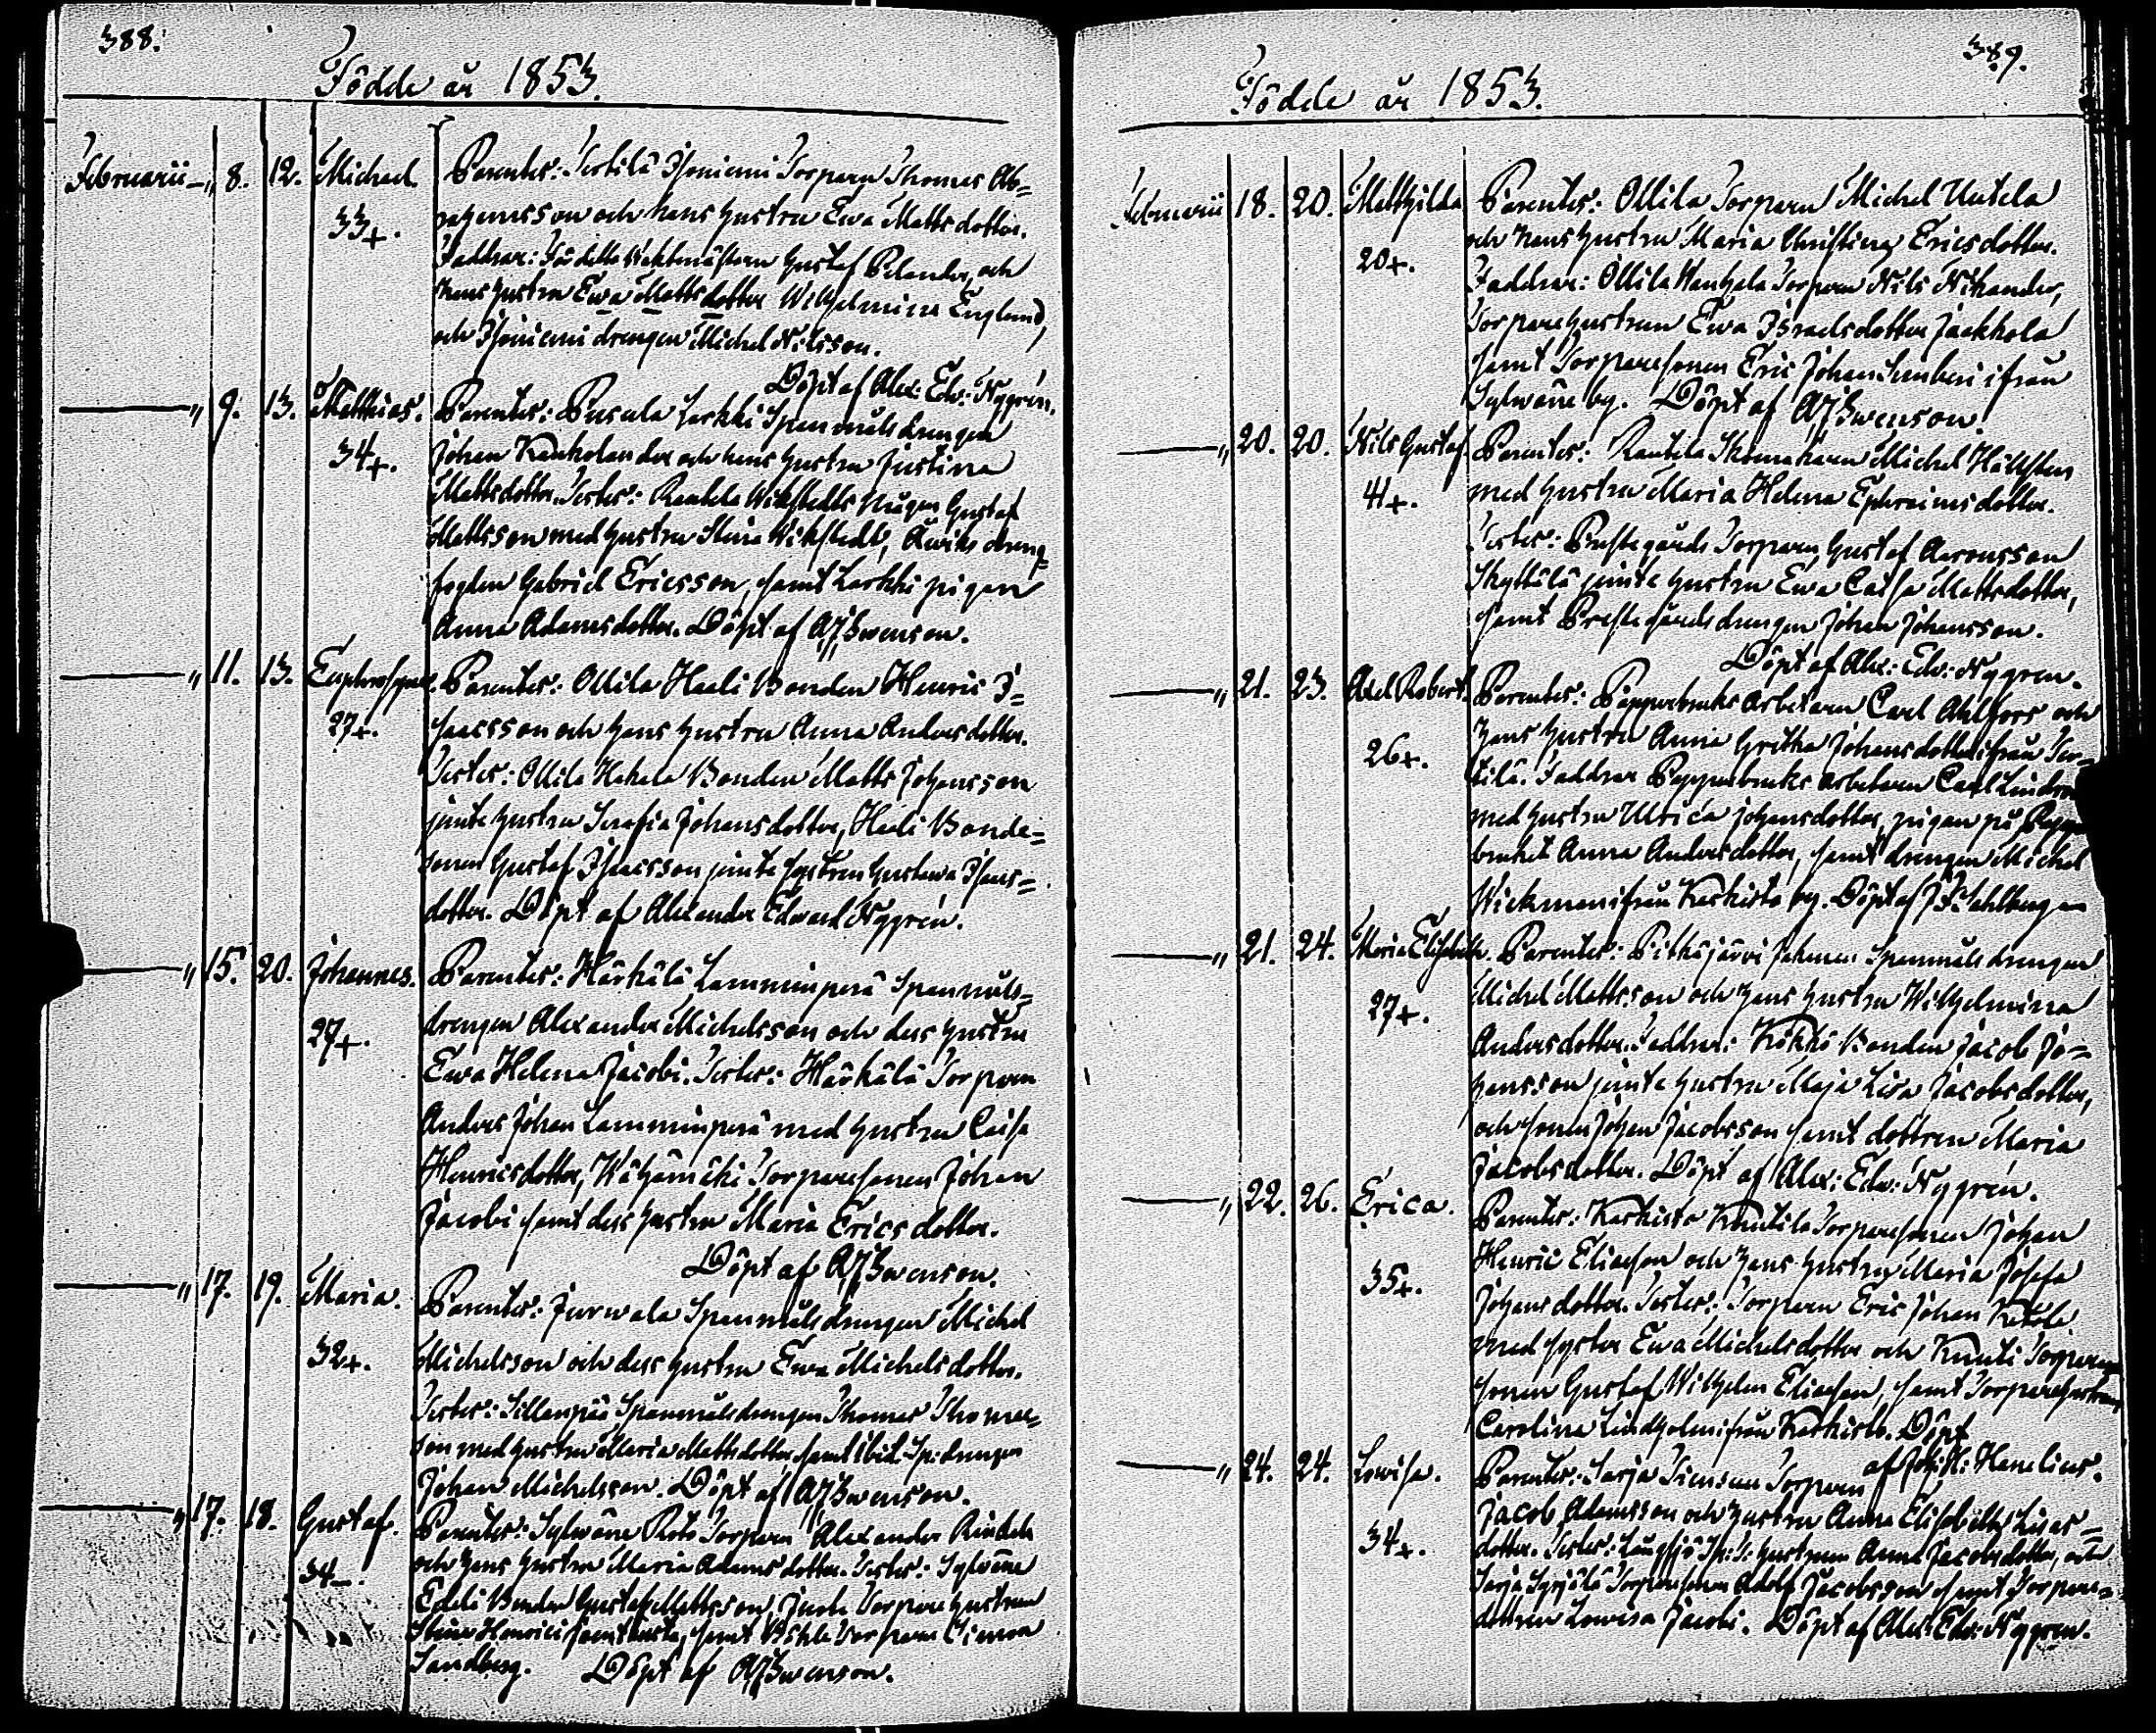 388.
Födde år 1853.
Februarii 8. 12. Michael. Parentes: Tertilä Isoniemi Torparen Thomas Ab=
33+. rahamsson och hans hustru Ewa Matts dotter.
Faddrar: Fördette Waktmästaren Gustaf Pelander, och
hans hustru Ewa Matts dotter Wilhelmina Englund,
och Isoniemi drengen Michel Nilsson.
Döpt af Alex: Edv: Nygrén.
9. 13. Matthias. Parentes: Pusula Jerkki Spanmåls drengen
34+. Johan och hans hustru Justina
Mattsdotter. Testes: Rautela Wikstedts Mågen Gustaf
Mattsson med hustru Stina Wikstedt, dreng=
fogden Gabriel Ericsson, samt pigan
Anna Adamsdotter. Döpt af Swenson.
11. 13. Euphrosyne. Parentes: Ollila Heeli Bonden Henric I=
27+. saacsson och hans hustru Anna Andersdotter.
Testes: Ollila Hakala Bonden Matts Johansson
jemte hustru Serafia Johansdotter, Heeli Bonde=
sonen Gustaf Isaacsson jemte systren Gustava Isaacs=
dotter. Döpt af Alexander Edward Nygrén.
15. 20. Johannes. Parentes: Härkälä Lamminperä Spanmåls=
27+. drengen Alexander Michelsson och dess hustru
Ewa Helena Jacobi. Testes: Härkälä Torparen
Anders Johan Lamminperä med hustru Caisa
Henricsdotter, Wähämäki Torparesonen Johan
Jacobi samt dess hustru Maria Ericsdotter.
Döpt af Swenson.
17. 19. Maria. Parentes: Jurwala Spanmåls drengen Michel
32+. Michelsson och dess hustru Ewa Michelsdotter.
Testes: Sillanpää Spanmåls drengen Thomas Thomas=
son med hustru Maria Mattsdotter samt ibid. Sp: drengen
Johan Michelsson. Döpt af Swenson.
17. 18. Gustaf. Parentes: Sylwäne Torparen Alexander
34-. och hans hustru Maria Adamsdotter. Testes: Sylwäne
Edeli Bonden Gustaf Mattsson, Torpare hustrun
Stina Henrici samt Torparen Simon
Sandberg. Döpt af Swenson.
389.
Födde år 1853.
Februarii 18. 20. Mathilda Parentes: Ollila Torparen Michel Untela
20+. och hans hustru Maria Christina Ericsdotter.
Faddrar: Ollila Torparen Nils Nikander,
Torparehustrun Ewa Israelsdotter Jaakkola
samt Torparesonen Eric Johan ifrån
Sylwäne by. Döpt af Swenson.
20. 20. Nils Gustaf. Parentes: Rautela Skomakaren Michel Hällsten
41+. med hustru Maria Helena Ephraimsdotter.
Testes: Prestegårds Torparen Gustaf Aaronsson
Skyttälä jemte hustru Ewa Caisa Mattsdotter,
samt Prestegårds drengen Johan Johansson.
Döpt af Alex: Edv: Nygren.
21. 23. Axel Robert. Parentes: Pappersbruks Arbetaren Carl Ahlfors och
26+. hans hustru Anna Gretha Johansdotter ifrån Ter=
tilä. Faddrar Pappersbruks arbetaren Carl
med hustru Ulrica Johansdotter, pigan på
bruket Anna Andersdotter, samt drengen Michel
Wickman ifrån Karkisto by. Döpt af Sahlberg
21. 24. Maria Elisabeth. Parentes: Pitkäjärvi Spanmåls drengen
27+. Michel Mattsson och hans hustru Wilhelmina
Andersdotter. Faddrar: Kökkö Bonden Jacob Jo=
hansson jemte hustru Maja Lisa Jacobsdotter,
och sonen Johan Jacobsson samt dottren Maria
Jacobsdotter. Döpt af Alex: Edv: Nygrén.
22. 26. Erica. Parentes: Karkisto Knuutila Torparesonen Johan
35+. Henric Eliasson och hans hustru Maria Josefa
Johansdotter. Testes: Torparen Eric Johan
med syster Ewa Michelsdotter och Knuuti Torpare
sonen Gustaf Wilhelm Eliasson, samt Torparehustrun
Carolina Lindholm ifrån Karkisto. Döpt
af Hanelius.
24. 24. Lowisa. Parentes: Sarja Torparen
34+. Jacob Adamsson och hustru Anna Elisabeth Lucas=
dotter. Testes: Långsjö hustrun Anna Jacobsdotter, och
Sarja Syrjälä Torparesonen Adolf Jacobsson samt Torpare=
dottren Lowisa Jacobi. Döpt af Alex: Edv: Nygren.